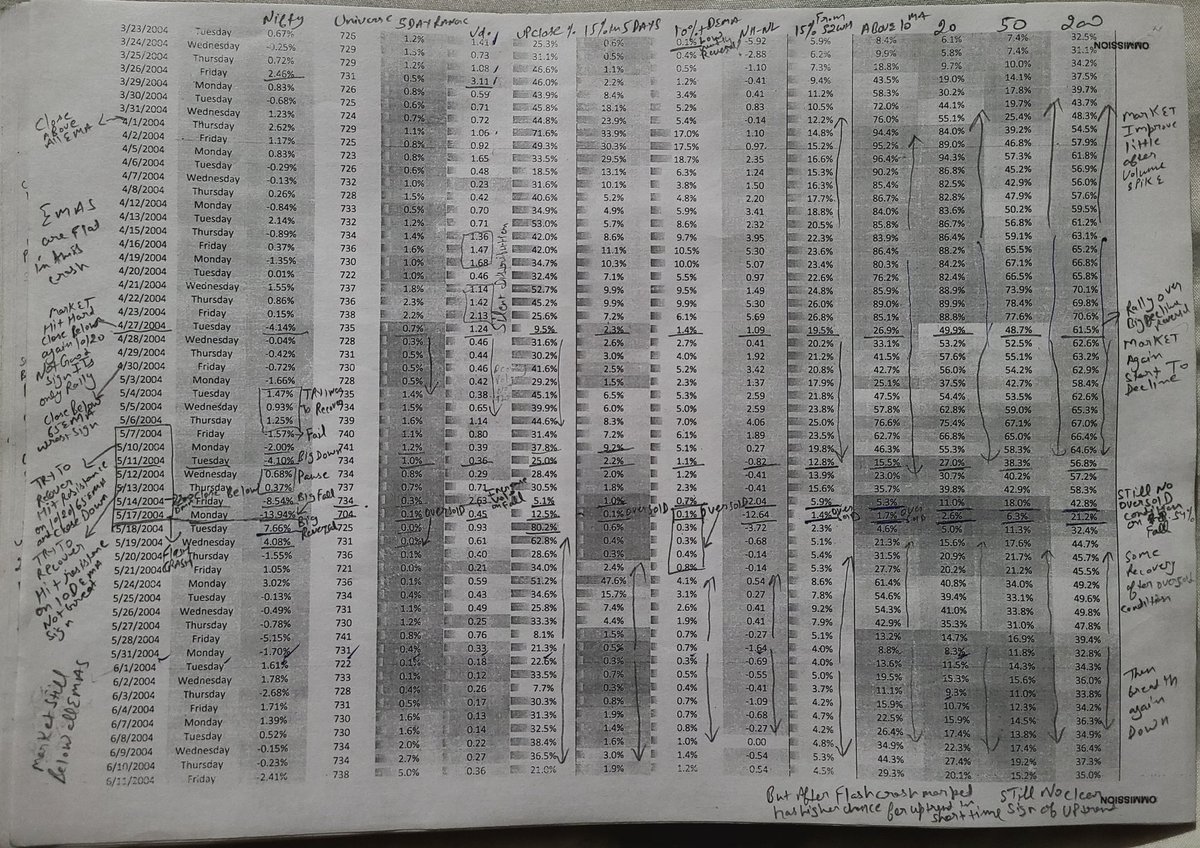 Nifty Universe 5DAYRANGE Vol. UPClose % 15% in 5 DAYS 10%+ DSMA NH-NL 15% From 52WH Above 10 MA 20 50 200
3/23/2004 Tuesday 0.67% 726 1.2% 1.41 25.3% 0.6% 0.1% -5.92 5.9% 8.4% 6.1% 7.4% 32.5%
3/24/2004 Wednesday -0.25% 0.73 31.1% 0.5% 0.4% -2.88 6.2% 9.9% 5.8% 7.4% 31.1%
3/25/2004 Thursday 0.72% 729 1.2% 1.08 46.6% 1.1% 0.5% -1.10 7.3% 18.8% 9.7% 10.0% 34.2%
3/26/2004 Friday 2.46% 731 0.5% 3.11 46.0% 2.2% 1.2% -0.41 9.4% 43.5% 19.0% 14.1% 37.5%
3/29/2004 Monday 0.83% 726 0.59 43.9% 8.4% 3.4% 0.41 11.2% 58.3% 30.2% 17.8% 39.7%
3/30/2004 Tuesday -0.68% 725 0.71 45.8% 18.1% 5.2% 0.83 10.5% 72.0% 44.1% 19.7% 43.7%
3/31/2004 Wednesday 1.23% 724 0.72 44.8% 23.9% 5.4% -0.14 12.2% 76.0% 55.1% 25.4% 48.3%
4/1/2004 Thursday 2.62% 729 1.1% 1.06 71.6% 33.9% 17.0% 1.10 14.8% 94.4% 84.0% 39.2% 54.5%
4/2/2004 Friday 1.17% 725 0.8% 0.92 49.3% 30.3% 17.5% 0.97 15.2% 95.2% 89.0% 46.8% 57.9%
4/5/2004 Monday 0.83% 723 1.65 33.5% 29.5% 18.7% 2.35 16.6% 96.4% 94.3% 57.3% 61.8%
4/6/2004 Tuesday -0.29% 726 0.6% 0.48 18.5% 13.1% 6.3% 1.24 15.3% 90.2% 86.8% 45.2% 56.9%
4/7/2004 Wednesday -0.13% 732 1.0% 0.23 31.6% 10.1% 3.8% 1.50 16.3% 85.4% 82.5% 42.9% 56.0%
4/8/2004 Thursday 0.26% 728 1.5% 0.42 40.6% 5.2% 4.8% 2.20 17.9% 86.7% 82.8% 47.9% 57.6%
4/12/2004 Monday -0.84% 733 0.5% 0.70 34.9% 4.9% 5.9% 3.41 18.8% 84.0% 83.6% 50.2% 59.5%
4/13/2004 Tuesday 2.14% 732 1.2% 0.71 53.0% 5.7% 8.6% 2.32 20.5% 85.8% 86.7% 56.8% 61.2%
4/15/2004 Thursday -0.89% 734 1.4% 1.36 42.0% 8.6% 9.7% 3.95 22.3% 83.9% 86.4% 59.1% 63.1%
4/16/2004 Friday 0.37% 736 1.6% 1.47 42.0% 11.1% 10.5% 5.30 23.6% 86.4% 88.2% 65.5% 65.2%
4/19/2004 Monday -1.35% 730 1.0% 1.68 34.7% 10.3% 10.0% 5.07 23.4% 80.3% 84.2% 67.1% 66.8%
4/20/2004 Tuesday 0.01% 722 1.1% 0.46 32.4% 7.1% 5.5% 0.97 22.6% 76.2% 82.4% 66.5% 65.8%
4/21/2004 Wednesday 1.55% 737 1.8% 1.14 52.7% 9.9% 9.5% 1.49 24.8% 85.9% 88.9% 73.9% 70.1%
4/22/2004 Thursday 0.86% 736 2.3% 1.42 45.2% 9.9% 9.9% 5.30 26.0% 89.0% 89.9% 78.4% 69.8%
4/23/2004 Friday 0.15% 738 2.2% 2.13 52.8% 6.1% 5.69 26.8% 88.8% 88.8% 77.6% 70.6%
4/27/2004 Tuesday -4.14% 735 0.7% 1.24 9.5% 2.3% 1.4% 1.09 19.5% 26.9% 49.9% 48.7% 61.5%
4/28/2004 Wednesday -0.04% 728 0.3% 0.46 31.6% 2.6% 2.7% 1.92 20.2% 33.1% 53.2% 52.5% 62.6%
4/29/2004 Thursday -0.42% 731 0.5% 0.44 30.2% 3.0% 4.0% 1.92 21.2% 41.5% 57.6% 55.1% 63.2%
4/30/2004 Friday -0.72% 730 0.5% 0.46 41.6% 2.5% 5.2% 3.42 20.8% 42.7% 56.0% 54.2% 62.9%
5/3/2004 Monday -1.66% 728 0.5% 0.42 29.2% 1.5% 2.3% 1.37 17.9% 25.1% 37.5% 42.7% 58.4%
5/4/2004 Tuesday 1.47% 735 1.4% 0.38 45.1% 6.5% 5.3% 2.59 21.8% 47.5% 54.4% 53.5% 62.8%
5/5/2004 Wednesday 0.93% 734 1.5% 0.65 39.9% 6.0% 5.0% 2.59 23.8% 57.8% 62.8% 59.0% 65.3%
5/6/2004 Thursday 1.25% 739 1.6% 1.14 44.6% 8.3% 7.0% 4.06 25.0% 76.6% 75.4% 67.1% 67.0%
5/7/2004 Friday -1.57% 740 1.1% 0.80 31.4% 7.2% 6.1% 1.89 23.5% 62.7% 66.8% 65.0% 66.4%
5/10/2004 Monday -2.00% 741 1.2% 0.39 37.8% 9.2% 5.1% 0.27 19.8% 44.3% 55.3% 58.3% 64.6%
5/11/2004 Tuesday -4.10% 734 1.0% 0.36 25.0% 2.2% 1.1% -0.82 12.8% 15.5% 27.0% 38.3% 56.8%
5/12/2004 Wednesday 0.68% 734 0.8% 0.29 28.4% 2.0% 1.2% -0.41 13.9% 23.0% 30.7% 40.2% 57.2%
5/13/2004 Thursday 0.37% 731 0.5% 0.71 34.5% 1.8% 1.2% -0.41 15.6% 35.7% 39.8% 42.9% 58.3%
5/14/2004 Friday -8.54% 734 0.3% 2.63 5.1% 1.0% 0.7% -2.04 5.9% 5.3% 11.0% 18.0% 42.8%
5/17/2004 Monday -13.94% 704 0.1% 0.45 12.5% 0.1% 0.1% -12.64 1.4% 1.7% 2.6% 6.3% 21.2%
5/18/2004 Tuesday 7.66% 725 0.0% 0.93 80.2% 0.6% 0.3% -3.72 2.3% 4.6% 5.0% 11.3% 32.4%
5/19/2004 Wednesday 4.08% 731 0.0% 0.61 60.8% 0.4% 0.3% -0.68 5.1% 21.3% 15.6% 17.6% 44.7%
5/20/2004 Thursday -1.55% 736 0.1% 0.40 28.6% 0.3% 0.4% -0.14 5.4% 31.5% 20.9% 21.7% 45.7%
5/21/2004 Friday 1.05% 721 0.0% 0.21 34.0% 2.4% 0.8% -0.14 5.3% 27.7% 20.2% 21.2% 45.5%
5/24/2004 Monday 3.02% 736 0.1% 0.59 51.2% 47.6% 4.1% 0.54 8.6% 61.4% 40.8% 34.0% 49.2%
5/25/2004 Tuesday -0.13% 734 0.4% 0.43 34.6% 15.7% 3.1% 0.27 7.8% 54.6% 39.4% 33.1% 49.6%
5/26/2004 Wednesday -0.49% 731 1.1% 0.49 25.8% 7.4% 2.6% 0.41 9.2% 54.3% 41.0% 33.8% 49.8%
5/27/2004 Thursday -0.78% 730 1.2% 0.25 33.3% 4.4% 1.9% 0.41 7.9% 42.9% 35.3% 31.0% 47.8%
5/28/2004 Friday -5.15% 741 0.8% 0.76 8.1% 1.5% 0.7% -0.27 5.1% 13.2% 14.7% 16.9% 39.4%
5/31/2004 Monday -1.70% 731 0.4% 0.33 21.3% 0.5% 0.4% -1.64 4.0% 8.8% 8.3% 11.8% 32.8%
6/1/2004 Tuesday 1.61% 722 0.1% 0.18 22.6% 0.7% 0.3% -0.69 4.0% 13.6% 11.5% 14.3% 34.3%
6/2/2004 Wednesday 1.78% 733 0.1% 0.12 33.5% 0.5% 0.3% -0.55 5.0% 19.5% 15.3% 15.6% 36.0%
6/3/2004 Thursday -2.68% 728 0.4% 0.26 7.7% 0.3% 0.4% -0.41 3.7% 11.1% 9.3% 11.0% 33.8%
6/4/2004 Friday 1.71% 731 0.5% 0.17 30.3% 0.8% 0.7% -1.09 4.2% 15.9% 10.7% 12.3% 34.2%
6/7/2004 Monday 1.39% 730 1.6% 0.13 31.3% 1.9% 0.7% -0.68 4.7% 22.5% 15.9% 14.5% 36.3%
6/8/2004 Tuesday 0.52% 730 1.6% 0.14 32.5% 1.4% 0.8% -0.27 4.4% 26.4% 17.4% 13.8% 34.9%
6/9/2004 Wednesday -0.15% 734 2.0% 0.22 38.4% 1.6% 1.0% 0.00 4.8% 34.9% 22.3% 17.4% 36.4%
6/10/2004 Thursday -0.23% 734 2.7% 0.27 36.5% 3.0% 1.4% -0.54 5.3% 44.3% 27.4% 19.2% 37.3%
6/11/2004 Friday -2.41% 738 5.0% 0.36 21.0% 1.9% 1.2% -0.54 4.5% 29.3% 20.1% 15.2% 35.0%
Close
Above
All EMA
EMAS
are Flat
in this
crash
Market
Hit Hard
close Below
again 10/20
Not Good
sign Its
only Rally
Close Below
65 EMA
worst sign
TRY TO
Recover
Hit resistance
on 10/20/65 EMA
and close Down
TRY TO
RECOVER
Hit resistance
on 10 DEMA
Not Good
Sign
Market Still
Below all EMAS
Silent distribution
TRYING
To Recover
Fail
Big Down
Pause
Close Below
Big Fall
Big
Reversal
Flash
CRASH
OVERSOLD
OVERSOLD
OVERSOLD
OVERSOLD
OVERSOLD
OMISSION
Market
Improve
little
after
Volume
SPIKE
Rally over
Big Decline
Market
Again
Start To
Decline
STILL NO
OVERSOLD
condition
on 8.54%
Fall
Some
Recovery
after oversold
condition
Then
breadth
again
DOWN
OMISSION
But After Flash crash marked
has higher chance for uptrend in
short time
Still No clear
Sign of Uptrend